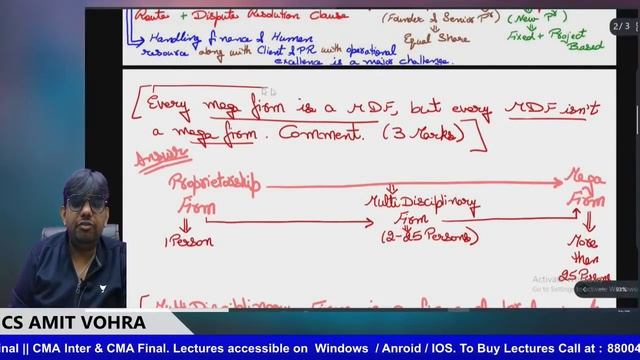 Route + Dispute Resolution Clause
(Founder & Senior Pr)
(New Pr)
2 / 3
Equal Share
Fixed + Project Based
Handling finance & Human
resource along with Client & PR with operational
excellence is a major challenge.
[Every mega firm is a MDF, but every MDF isn't
a mega firm. Comment. (3 Marks)]
Answer
Proprietorship
Firm
Multi Disciplinary
Firm
Mega
Firm
1 Person
(2-25 Persons)
More
then
25 Persons
Go to Settings to activate Windows
93%
[Multi Disciplinary Firm is a
CS AMIT VOHRA
inal || CMA Inter & CMA Final. Lectures accessible on Windows / Anroid / IOS. To Buy Lectures Call at : 88004